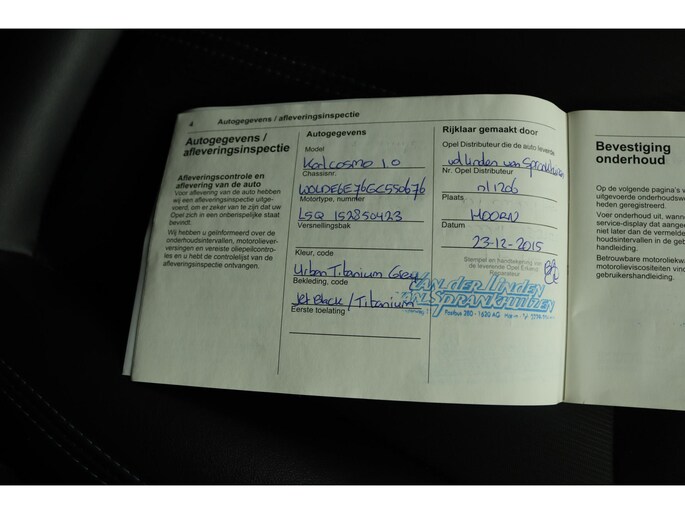 4 Autogegevens / afleveringsinspectie
Autogegevens /
afleveringsinspectie
Afleveringscontrole en
aflevering van de auto
Voor aflevering van de auto hebben
wij een afleveringsinspectie uitge-
voerd, om er zeker van te zijn dat uw
Opel zich in een onberispelijke staat
bevindt.
Wij hebben u geïnformeerd over de
onderhoudsintervallen, motorolieverver-
versingen en vereiste oliepeilcontro-
les en u hebt de controlelijst van de
afleveringsinspectie ontvangen.
Autogegevens
Model
Karl cosmo 1.0
Chassisnr.
W0LDE6E76GC550676
Motortype, nummer
LSQ 152850423
Versnellingsbak
Kleur, code
Urban Titanium Grey
Bekleding, code
Jet Black / Titanium
Eerste toelating
Rijklaar gemaakt door
Opel Distributeur die de auto leverde
vd Linden van Sprankhuizen
Nr. Opel Distributeur
nl1206
Plaats
HOORN
Datum
23-12-2015
Stempel en handtekening van
de leverende Opel Erkend
Reparateur
VAN DER LINDEN
VAN SPRANKHUIZEN
Postbus 280 - 1620 AG
Bevestiging
onderhoud
Op de volgende pagina's
uitgevoerde onderhoudsw
heden geregistreerd.
Voer onderhoud uit, wanne
service-display dat aangee
niet later dan de vermelde
houdsintervallen in de gebr
handleiding.
Betrouwbare motoroliekwa
motorolieviscositeiten vind
gebruikershandleiding.